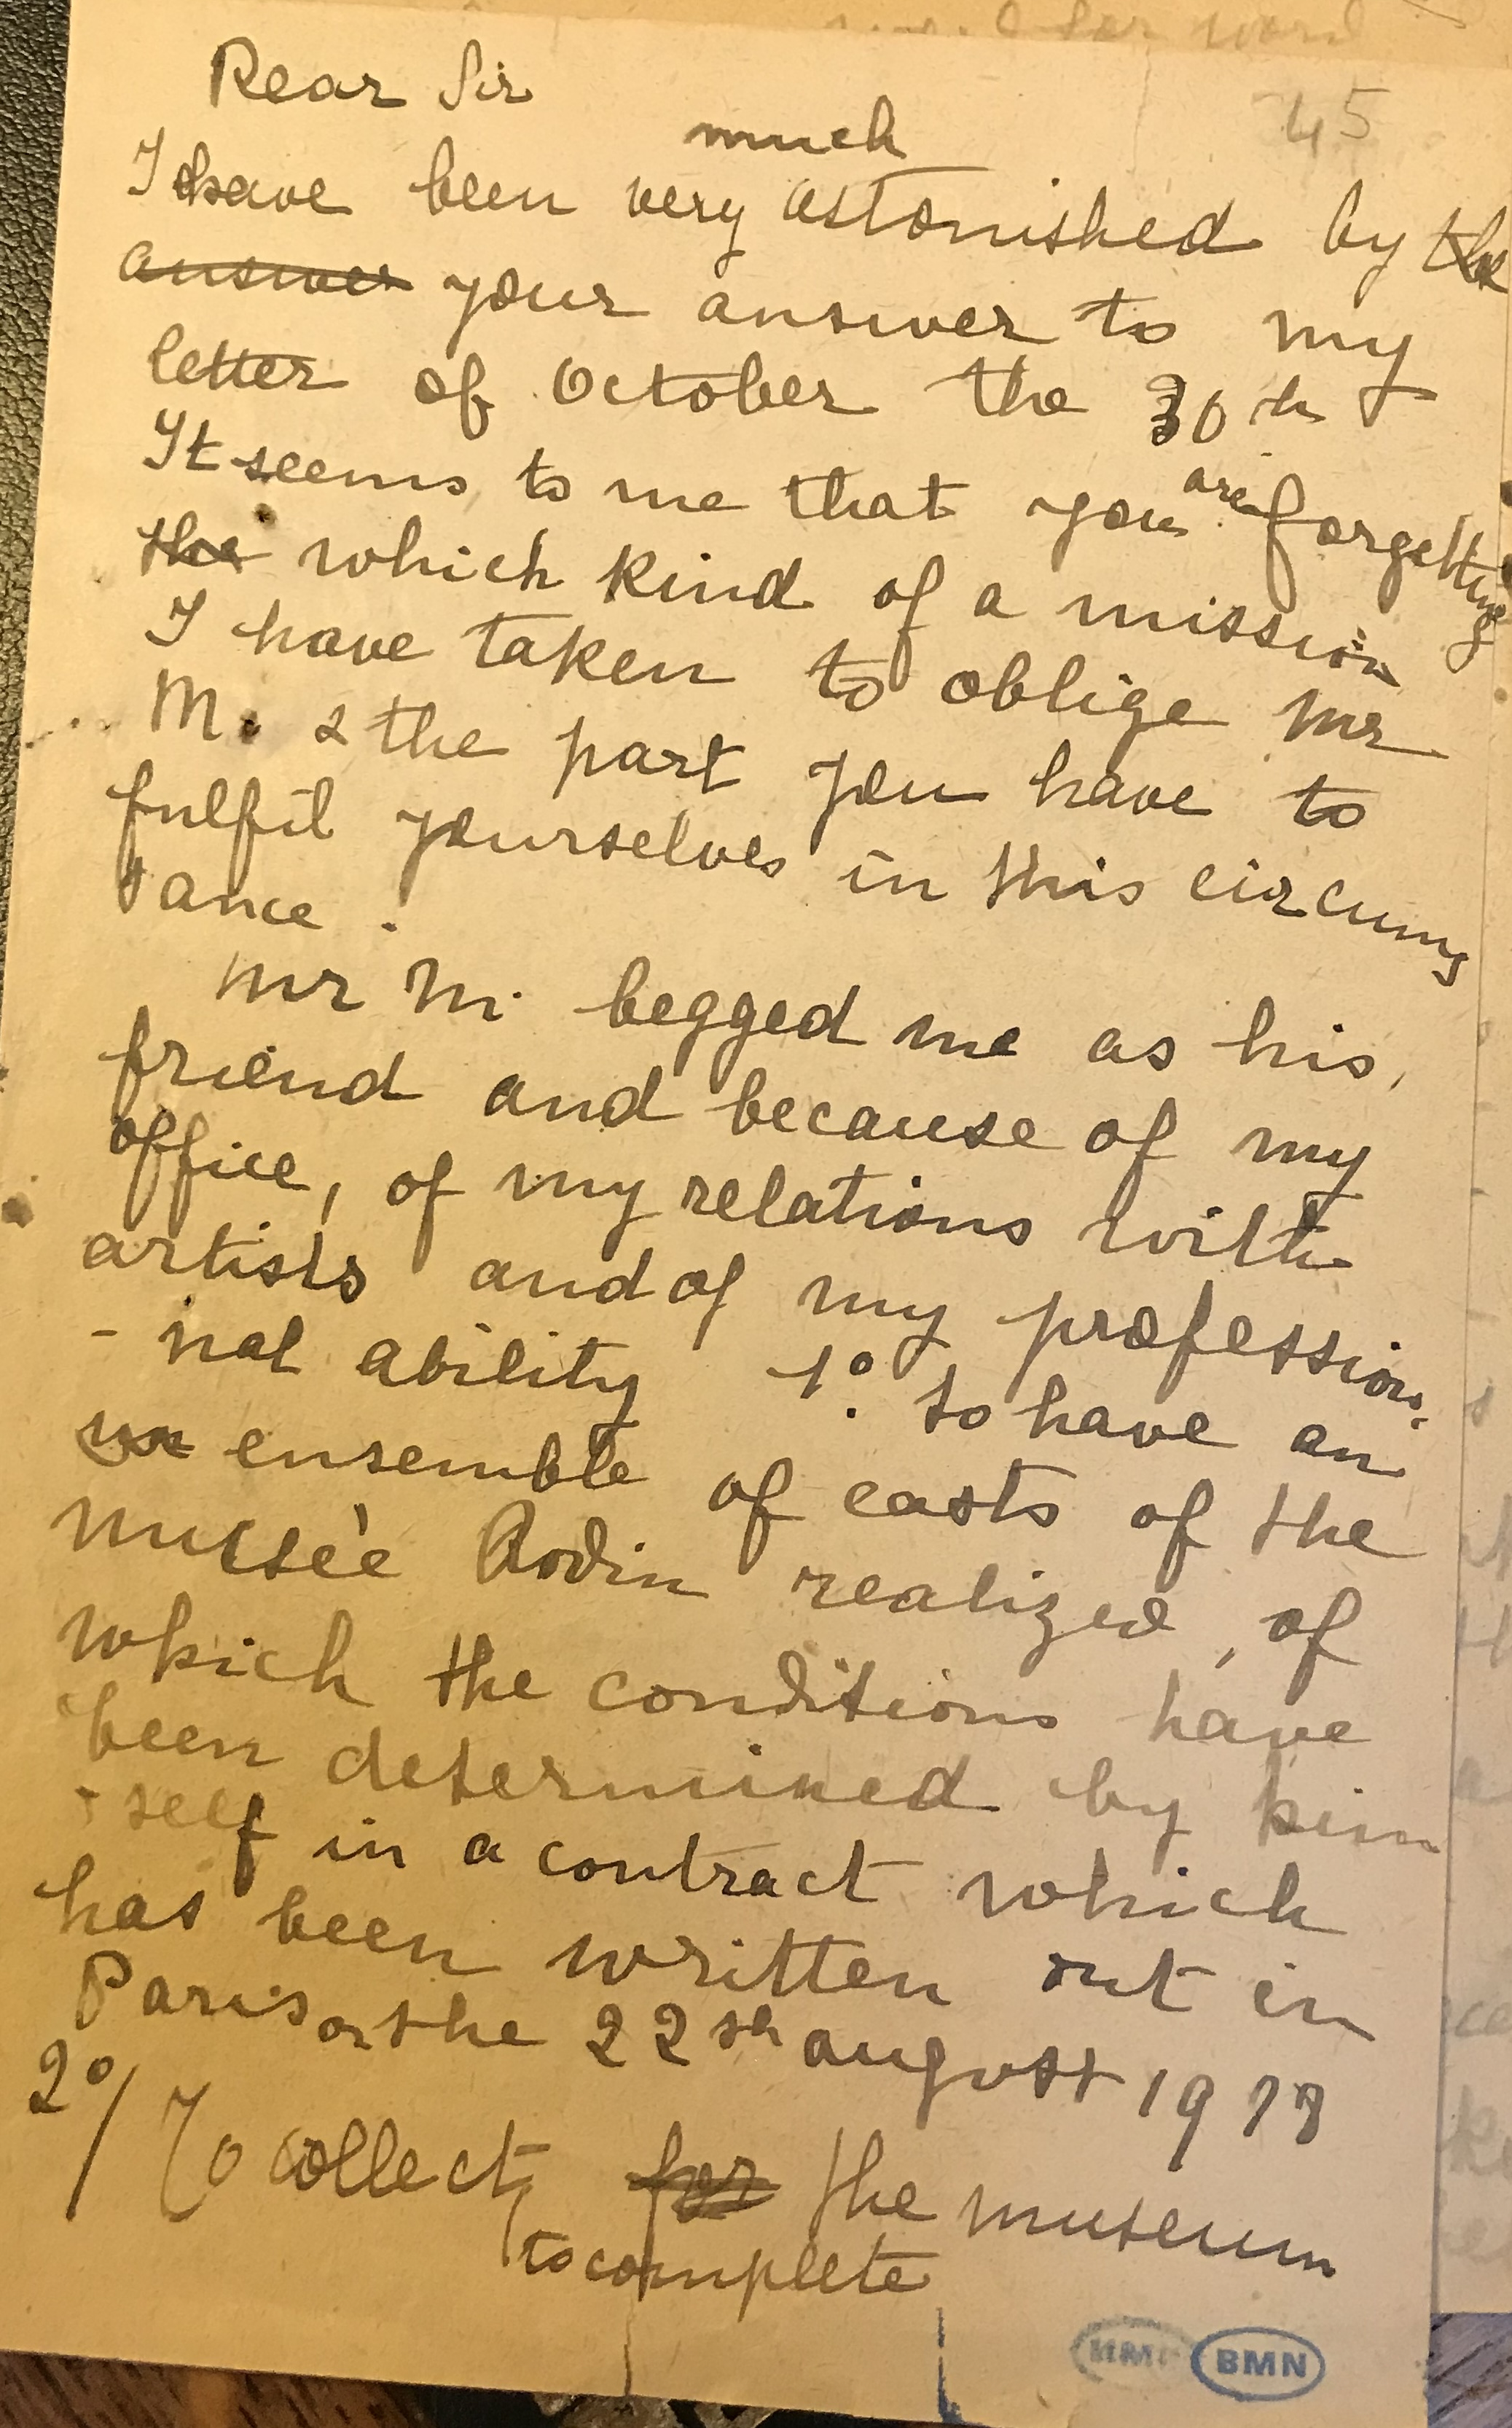 Dear Sir
45
much
I have been very astonished by the
answer your answer to my
letter of October the 30 th
It seems to me that you are forgetting
the which kind of a mission
I have taken to oblige Mr
M. & the part you have to
fulfil yourselves in this circums
tance.
Mr M. begged me as his
friend and because of my
office, of my relations with
artists and of my profession-
- nal ability 1° to have an
ensemble of casts of the
Musée Rodin realized, of
which the conditions have
been determined by him
-self in a contract which
has been written out in
Paris on the 22th august 19
2°/ To collect, for the museum
to complete
BMN